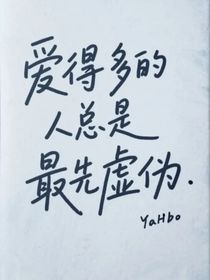 爱得多的
人总是
最先虚伪.
YaHbo